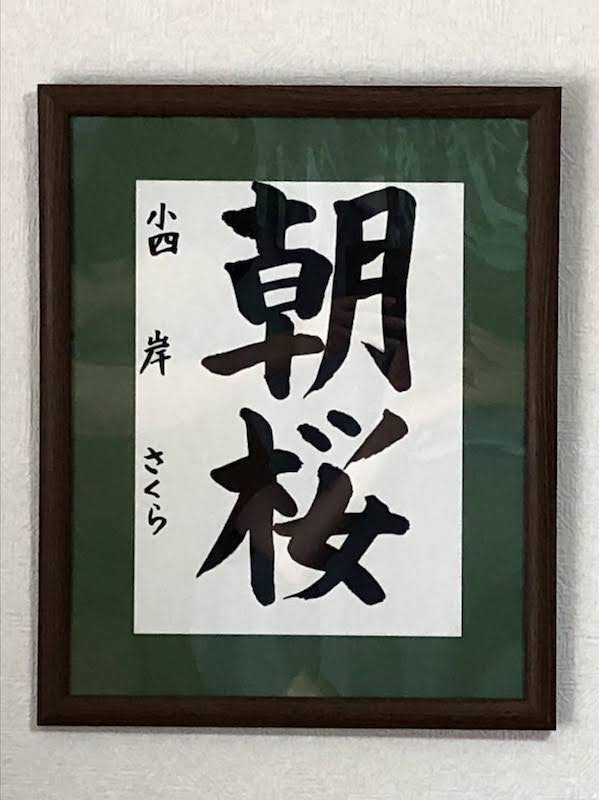 朝桜
小四 岸 さくら